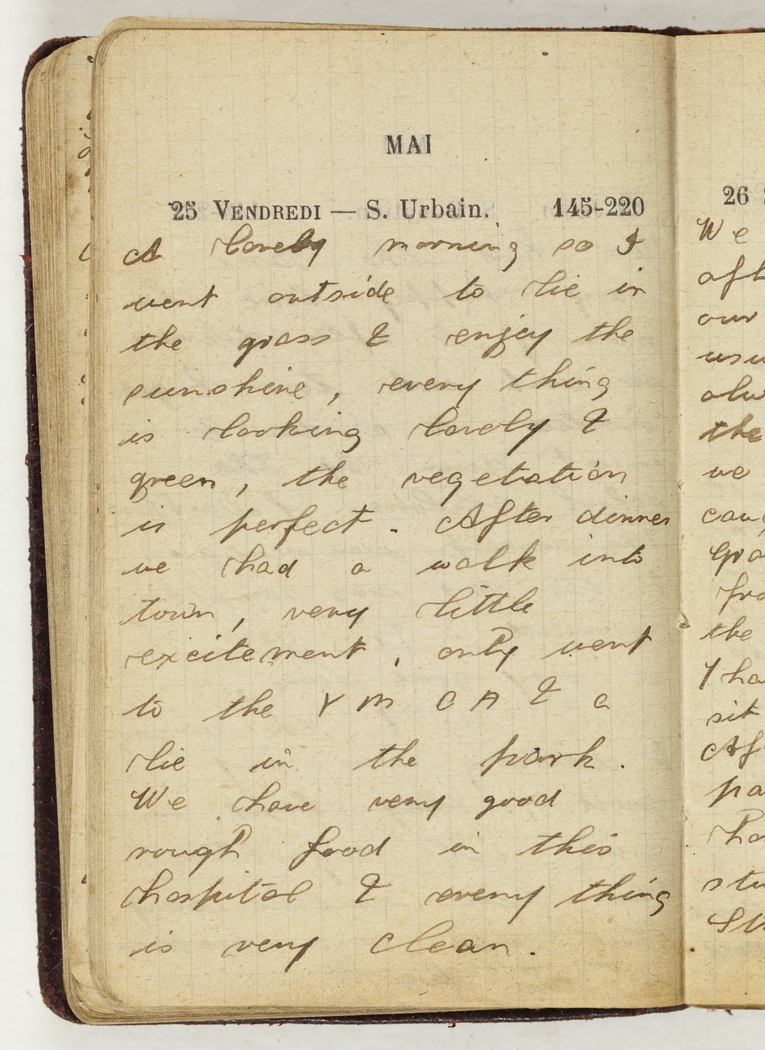 MAI
25 VENDREDI — S. Urbain. 145-220
A lovely morning so I
went outside to lie in
the grass & enjoy the
sunshine, every thing
is looking lovely &
green, the vegetation
is perfect. After dinner
we had a walk into
town, very little
excitement, only went
to the Y M C A & a
lie in the park.
We have very good
rough food in this
hospital & every thing
is very clean.
26
We
our
the
we
the
sit